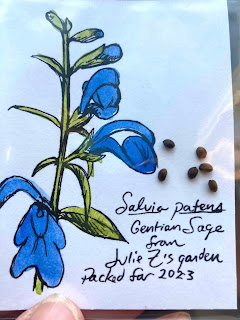 Salvia patens
Gentian Sage
from
Julie Z's garden
Packed for 2023